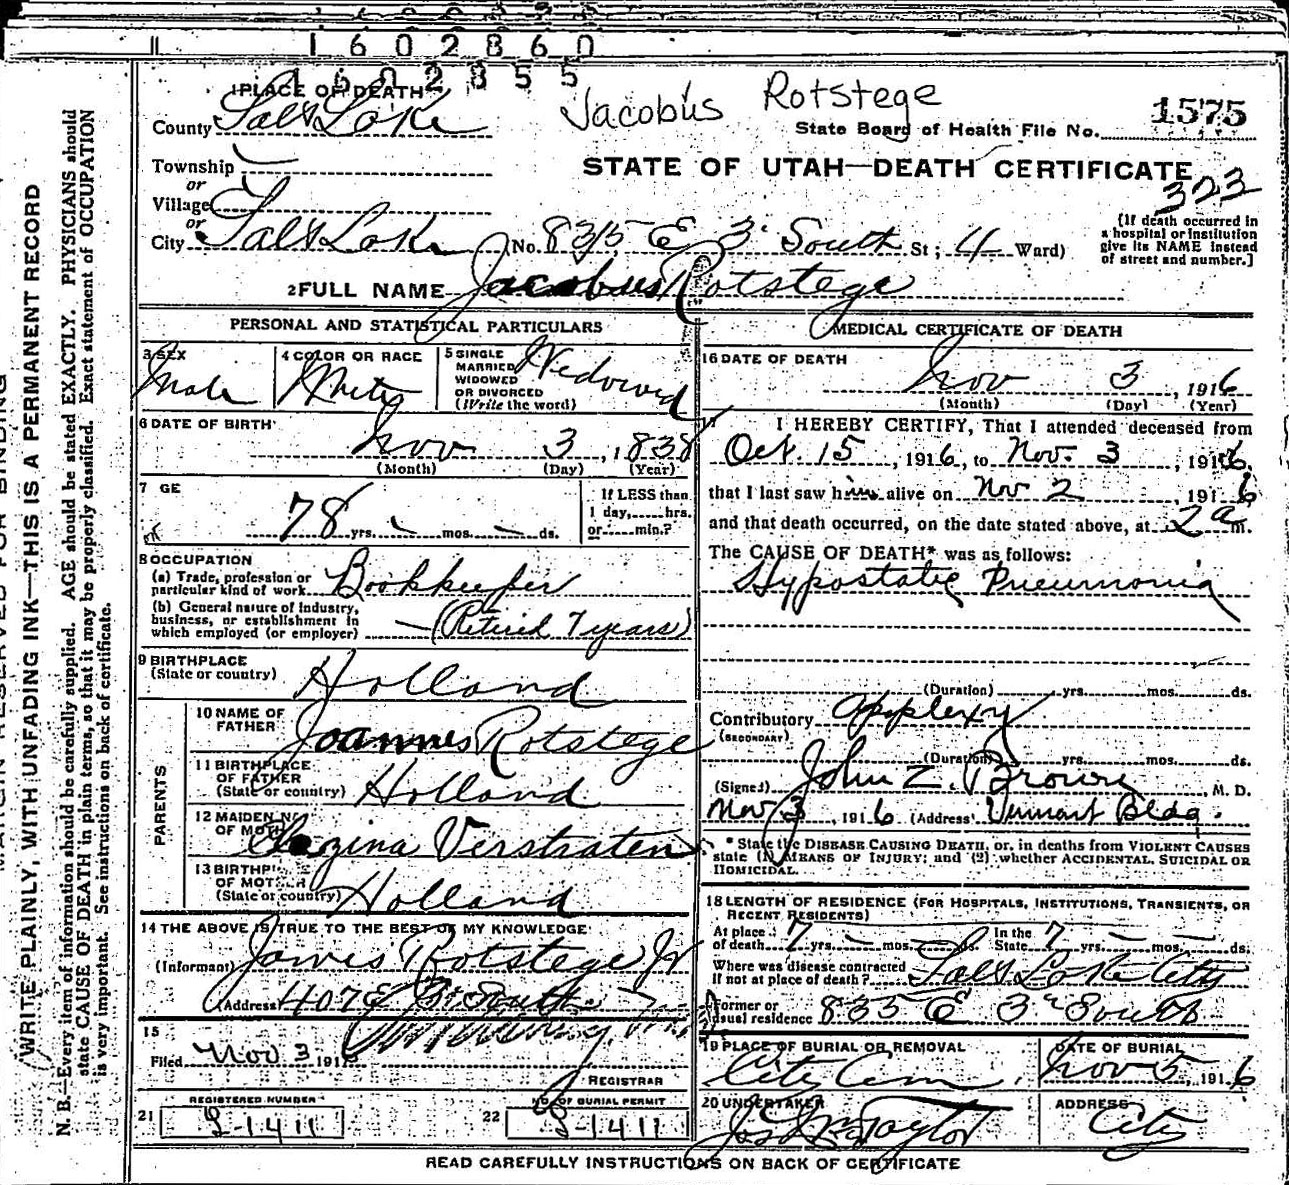 1 6 0 2 8 6 0
1 6 0 2 8 5 5
1 PLACE OF DEATH
Jacobus Rotstege
1575
County Salt Lake
State Board of Health File No.
Township
or
STATE OF UTAH—DEATH CERTIFICATE
323
Village
or
City Salt Lake No. 835 E 3d South St; 4 Ward)
(If death occurred in
a hospital or institution
give its NAME instead
of street and number.]
2 FULL NAME Jacobus Rotstege
PERSONAL AND STATISTICAL PARTICULARS
3 SEX
Male
4 COLOR OR RACE
White
5 SINGLE
MARRIED
WIDOWED
OR DIVORCED
(Write the word)
Widowed
6 DATE OF BIRTH
Nov 3, 1838
(Month) (Day) (Year)
7 GE
78 yrs. mos. ds.
If LESS than
1 day, hrs.
or min.?
8 OCCUPATION
(a) Trade, profession or
particular kind of work Bookkeeper
(b) General nature of industry,
business, or establishment in
which employed (or employer) (Retired 7 years)
9 BIRTHPLACE
(State or country) Holland
PARENTS
10 NAME OF
FATHER Joannes Rotstege
11 BIRTHPLACE
OF FATHER
(State or country) Holland
12 MAIDEN NA
OF MOTH Verstraten
13 BIRTHP
OF MOTHER
(State or country) Holland
14 THE ABOVE IS TRUE TO THE BEST OF MY KNOWLEDGE
(Informant) James Rotstege Jr
Address 407 E 3d South
15
Filed Nov 3 191
REGISTRAR
REGISTERED NUMBER
21 S-1411
NO. OF BURIAL PERMIT
22 S-1411
MEDICAL CERTIFICATE OF DEATH
16 DATE OF DEATH
Nov 3, 1916
(Month) (Day) (Year)
I HEREBY CERTIFY, That I attended deceased from
Oct. 15, 1916, to Nov. 3, 1916.
that I last saw him alive on Nov 2 1916
and that death occurred, on the date stated above, at 2 a m.
The CAUSE OF DEATH* was as follows:
Hypostatic Pneumonia
(Duration) yrs. mos. ds.
Contributory Apoplexy
(SECONDARY)
(Duration) yrs. mos. ds.
(Signed) John Z. Brown M. D.
Nov 3, 1916 (Address) Vermont Bldg.
* State the DISEASE CAUSING DEATH, or, in deaths from VIOLENT CAUSES
state (1) MEANS OF INJURY; and (2) whether ACCIDENTAL, SUICIDAL OR
HOMICIDAL.
18 LENGTH OF RESIDENCE (FOR HOSPITALS, INSTITUTIONS, TRANSIENTS, OR
RECENT RESIDENTS)
At place
of death 7 yrs. mos. ds. In the
State 7 yrs. mos. ds.
Where was disease contracted
If not at place of death? Salt Lake City
Former or
usual residence 835 E 3d South
19 PLACE OF BURIAL OR REMOVAL
City Cem.
DATE OF BURIAL
Nov 5, 1916
20 UNDERTAKER
Jos Wm Taylor
ADDRESS
City
READ CAREFULLY INSTRUCTIONS ON BACK OF CERTIFICATE
WRITE PLAINLY, WITH UNFADING INK—THIS IS A PERMANENT RECORD
N. B.—Every item of information should be carefully supplied. AGE should be stated EXACTLY. PHYSICIANS should
state CAUSE OF DEATH in plain terms, so that it may be properly classified. Exact statement of OCCUPATION
is very important. See instructions on back of certificate.